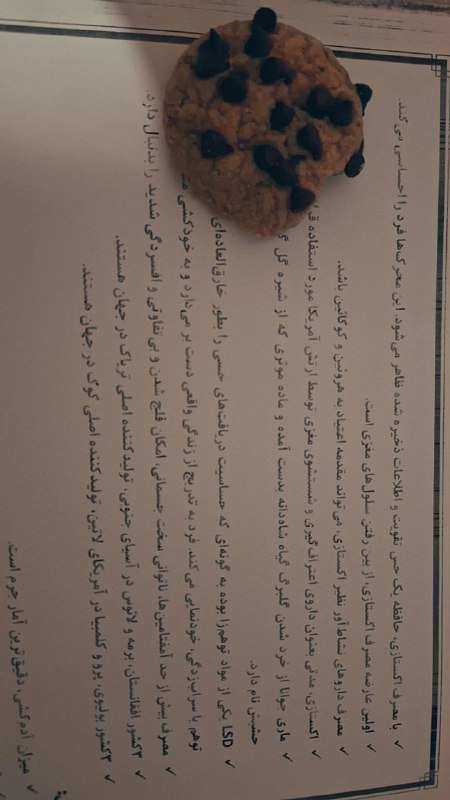 ✓ با مصرف اکستازی، حافظه یک حس تقویت و اطلاعات ذخیره شده ظاهر می‌شود. این محرک‌ها فرد را احساسی می‌کند.
✓ اولین عارضه مصرف اکستازی، از بین رفتن سلول‌های مغزی است.
✓ مصرف داروهای نشاط‌آور نظیر اکستازی، می‌تواند مقدمه اعتیاد به هروئین و کوکائین باشد.
✓ اکستازی، مدتی بعنوان داروی اعتراف‌گیری و شستشوی مغزی توسط ارتش آمریکا مورد استفاده
✓ ماری جوانا از خرد شدن گلبرگ گیاه شاهدانه بدست آمده و ماده موثری که از شیره گل
حشیش نام دارد.
✓ LSD یکی از مواد توهم‌زا بوده به گونه‌ای که حساسیت دریافت‌های حسی را بطور خارق‌العاده‌ای
توهم یا سراب‌زدگی، خودنمایی می‌کند. فرد به تدریج از زندگی واقعی دست بر می‌دارد و به خودکشی
✓ مصرف بیش از حد آمفتامین‌ها، ناتوانی سخت جسمانی، امکان فلج شدن و بی تفاوتی و افسردگی شدید را بدنبال دارد.
✓ ۳کشور افغانستان، برمه و لائوس در آسیای جنوبی، تولیدکننده اصلی تریاک در جهان هستند.
✓ ۳کشور بولیوی، پرو و کلمبیا در آمریکای لاتین، تولیدکننده اصلی کوک در جهان هستند.
✓ میزان آدم‌کشی، دقیق‌ترین آمار جرم است.